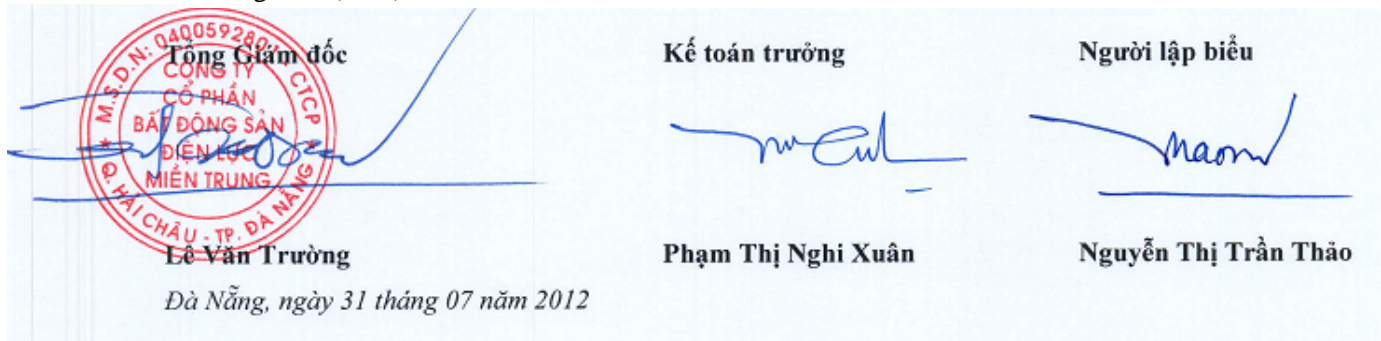 Tổng Giám đốc
Kế toán trưởng
Người lập biểu
M.S.D.N: 0400592801 CTCP
CÔNG TY
CỔ PHẦN
BẤT ĐỘNG SẢN
ĐIỆN LỰC
MIỀN TRUNG
Q. HẢI CHÂU - TP. ĐÀ NẴNG
Lê Văn Trường
Phạm Thị Nghi Xuân
Nguyễn Thị Trần Thảo
Đà Nẵng, ngày 31 tháng 07 năm 2012